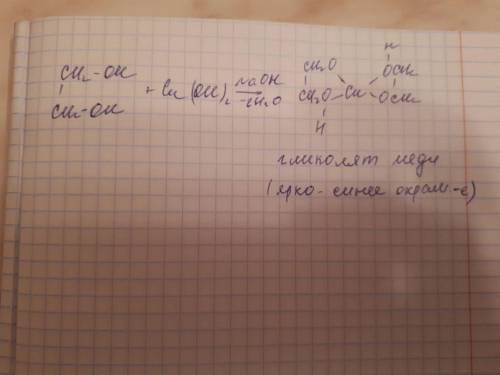 CH₂-OH
CH₂-OH
+ Cu(OH)₂ NaOH
-2H₂O
H
CH₂O OCH₂
CH₂O Cu OCH₂
H
гликолят меди
(ярко-синее окраш-е)